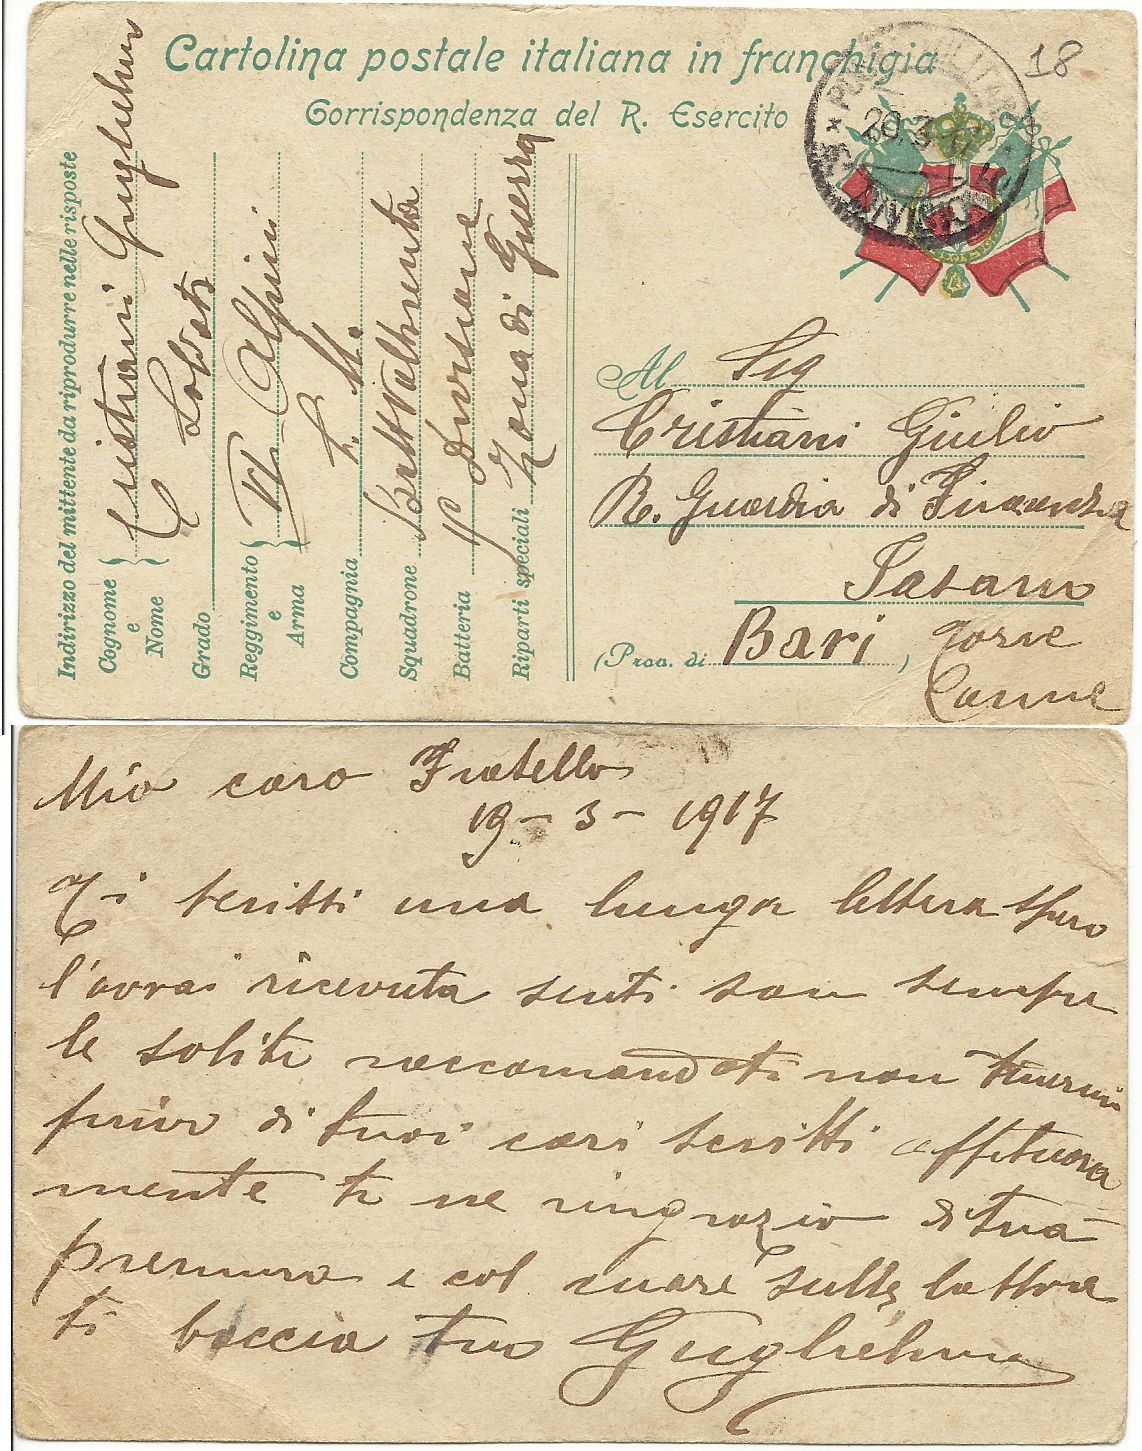 Cartolina postale italiana in franchigia
Corrispondenza del R. Esercito
18
20.3.17
DIVISI
Indirizzo del mittente da riprodurre nelle risposte
Cognome e Nome } Cristiani Guglielmo
Grado Soldato
Reggimento e Arma } VI Alpini
Compagnia
Squadrone Batt Val
Batteria Divisione
Riparti speciali Zona di Guerra
Al Sig
Cristiani Giulio
R. Guardia di Finanza
Fasano
(Prov. di Bari) Torre
Canne
Mio caro Fratello
19-3-1917
Ti scritti una lunga lettera spero
l'avrai ricevuta senti son sempre
le soliti raccomandati non
privo di tuoi cari scritti affetuosa
mente ti ne ringrazio di tua
premura e col cuore sulle labbra
ti baccio tuo Guglielmo